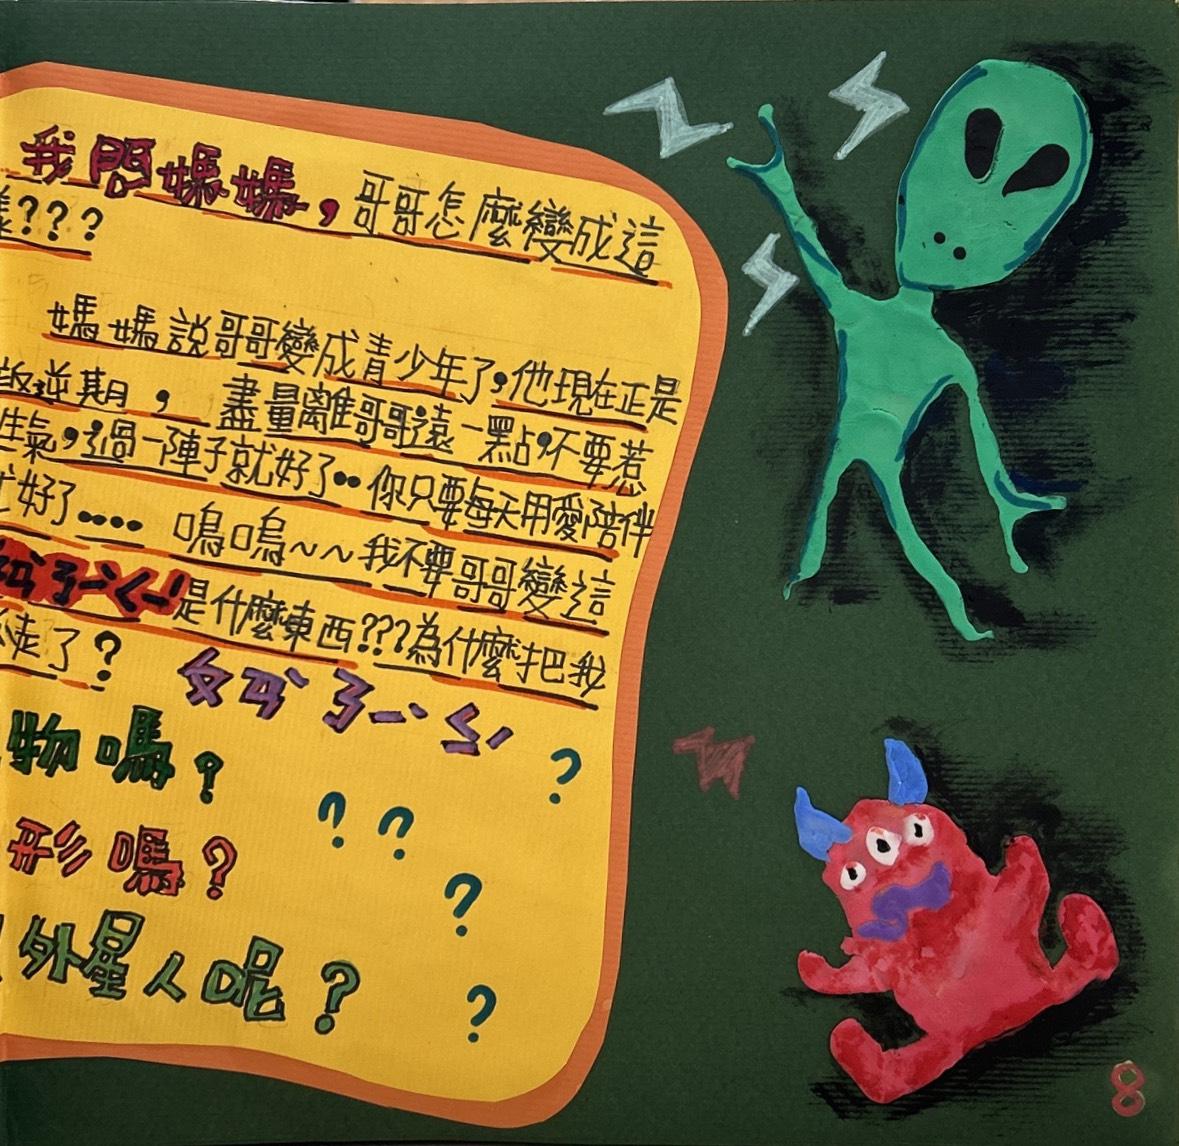 我問媽媽，哥哥怎麼變成這
樣???
媽媽說哥哥變成青少年了，他現在正是
叛逆期，盡量離哥哥遠一點，不要惹
生氣，過一陣子就好了‥你只要每天用愛陪伴
就好了‥‥ 嗚嗚~~我不要哥哥變這
是什麼東西???為什麼把我
走了?
ㄆㄢˋ ㄋㄧˋ ㄑㄧˊ
物嗎?
?
? ?
形嗎?
?
外星人呢?
?
8